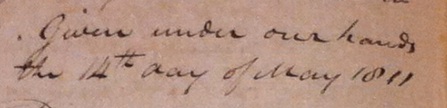 . Given under our hands
the 14th day of May 1811